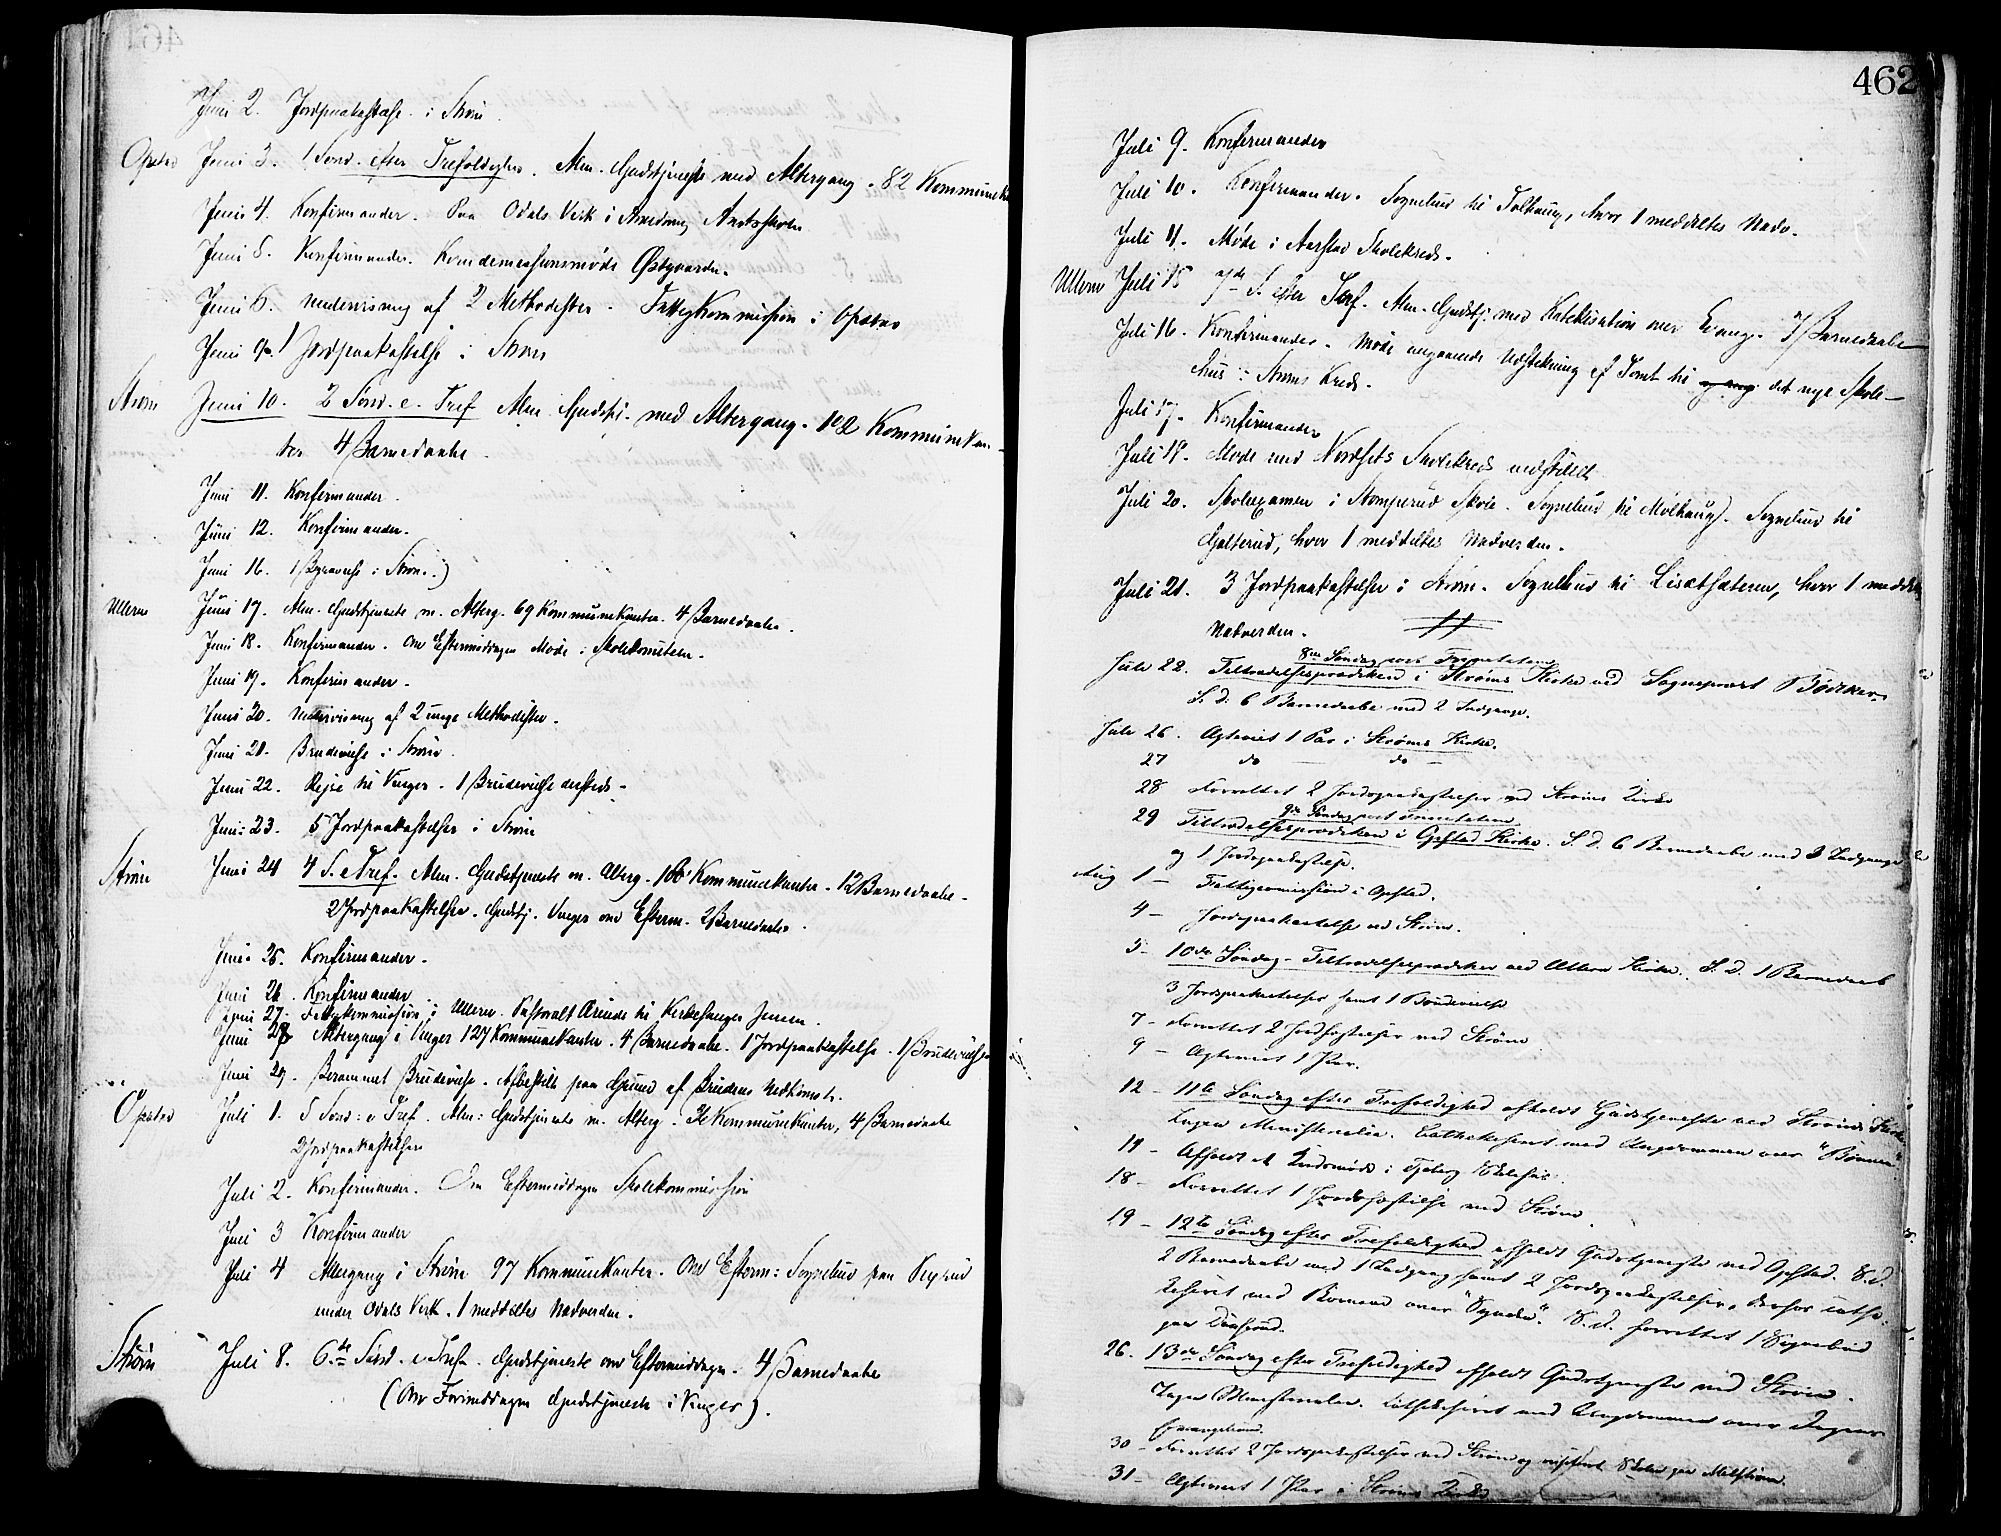 Juni 2. Jordpaakastelse i Strøm
Opstad Juni 3. 1 Sond. efter Trefoldighed. Alm. Gudstjeneste med Altergang. 82 Kommunik
Juni 4. Konfirmander. Paa Odals Verk i Anledning Amtsskolen
Juni 5. Konfirmander.
Juni 6. Undervisning af 2 Methodister. Fattigkommission i Opstad
Juni 9. 1 Jordpaakastelse i Strøm
Strøm Juni 10. 2 Sond. e. Tref Alm. Gudstj. med Altergang. 102 Kommunikan-
ter 4 Barnedaabe.
Juni 11. Konfirmander.
Juni 12. Konfirmander.
Juni 16. 1 Begravelse i Strøm.
Ullern Juni 17. Alm. Gudstjeneste m. Alterg. 69 Kommunikanter. 4 Barnedaabe.
Juni 18. Konfirmander. Om Eftermiddagen Møde i Skolekomiteen.
Juni 19. Konfirmander.
Juni 20. Undervisning af 2 unge Methodister.
Juni 21. Brudevielse i Strøm.
Juni 22. Rejse til Vinger. 1 Brudevielse dersteds.
Juni 23. 5 Jordpaakastelser i Strøm
Strøm Juni 24 4 S. e Tref. Alm. Gudstjeneste m. Alterg. Kommunikanter. 12 Barnedaabe.
2 Jordpaakastelser. Gudstj. Vinger om Efterm. 2 Barnedaabe.
Juni 25. Konfirmander.
Juni 26. Konfirmander
Juni 27. Fattigkommission i Ullern. Pastoralt Ærinde til Kirkesanger Jensen.
Juni 28 Altergang i Vinger 127 Kommunikanter. 4 Barnedaabe. 1 Jordpaakastelse. 1 Brudevielse
Juni 29. Berammet Brudevielse. Afbestilt paa Grund af Brudens Nedkomst.
Opstad Juli 1. 5 Sond: e Tref. Alm: Gudstjeneste m. Alterg. Kommunikanter, 4 Barnedaabe
2 Jordpaakastelser
Juli 2. Konfirmander. Om Eftermiddagen Skolekommission
Juli 3 Konfirmander
Juli 4 Altergang i Strøm 97 Kommunikanter. Om Efterm: Sognebud paa
under Odals Verk. 1 meddeltes Nadverden.
Strøm Juli 8. 6te Sønd. e. Tref. Gudstjeneste om Eftermiddagen. 4 Barnedaabe
(Om Formiddagen Gudstjeneste i Vinger).
462
Juli 9. Konfirmander
Juli 10. Konfirmander. Sognebud til Tolhaug, hvor 1 meddeltes Nadv.
Juli 11. Møde i Aarstad Skolekreds.
Ullern Juli 15 7de S. efter Tref. Alm. Gudstj. med Katekisation over Evang. 7 Barnedaabe
Juli 16. Konfirmander. Møde angaaende Udstikning af Tomt til det nye Skole-
hus i Strøms Kreds.
Juli 17. Konfirmander
Juli 19. Møde med Nordsets Skolekreds
Juli 20. Skoleexamen i Stomperud Skole. Sognebud til Mølhaug. Sognebud til
Galterud, hvor 1 meddeltes Nadverden.
Juli 21. 3 Jordpaakastelser i Strøm. Sognebud til Lisætsæteren, hvor 1 meddeltes
Nadverden.
8de Søndag post Trinitatem
Juli 22. Tiltrædelsesprædiken i Strøms Kirke ved Sogneprest Bødtker.
S. d. 6 Barnedaabe med 2 Indgange.
Juli 26. Agteviet 1 Par i Strøms Kirke.
27 do do
28 Forrettet 2 Jordpaakastelser ved Strøms Kirke
9de Søndag post Trinitatem
29 Tiltrædelsesprædiken i Opstad Kirke. S. d. 6 Barnedaabe med 3 Indgange
og 1 Jordpaakastelse.
Aug 1 – Fattigcommission i Opstad.
4 – Jordpaakastelse ved Strøm.
5 – 10de Søndag – Tiltrædelsesprædiken ved Ullern Kirke. S. D. 1 Barnedaab
3 Jordpaakastelser samt 1 Brudevielse
7 – Forrettet 2 Jordfæstelser ved Strøm
9 – Agteviet 1 Par.
12 – 11te Søndag efter Trefoldighed afholdt Gudstjeneste ved Strøms Kirke
Ingen Ministerialia. Cathekiseret med Ungdommen over "Bønnen"
14 – Afholdt et Kredsmøde i Skolehus.
18 – Forrettet 1 Jordfæstelse ved Strøm.
19 – 12te Søndag efter Trefoldighed afholdt Gudstjeneste ved Opstad. S. d.
2 Barnedaabe med 1 Indgang samt 2 Jordpaakastelser, derhos cathe-
kiseret med Børnene over "Synden". S. d. forrettet 1 Sognebud
paa
26. 13de Søndag efter Trefoldighed afholdt Gudstjeneste ved Strøm.
Ingen Ministerialia. Cathekiseret med Ungdommen over Dagens
Evangelium.
30 – Forrettet 2 Jordpaakastelser ved Strøm og visiteret Skolen paa
31 – Agteviet 1 Par i Strøms Kirke